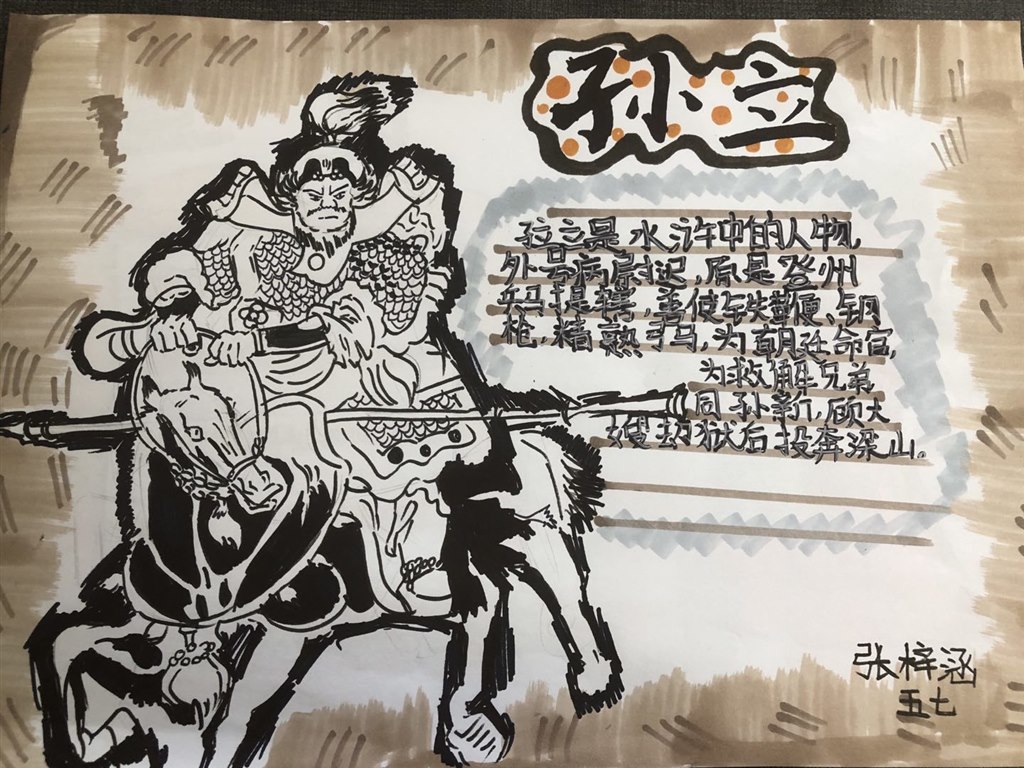 孙立
孙立是水浒中的人物,
外号病尉迟,原是登州
兵马提辖,善使铁鞭、钢
枪,精熟弓马,为朝廷命官,
为救解兄弟
同孙新,顾大
嫂劫狱后投奔深山。
张梓涵
五七